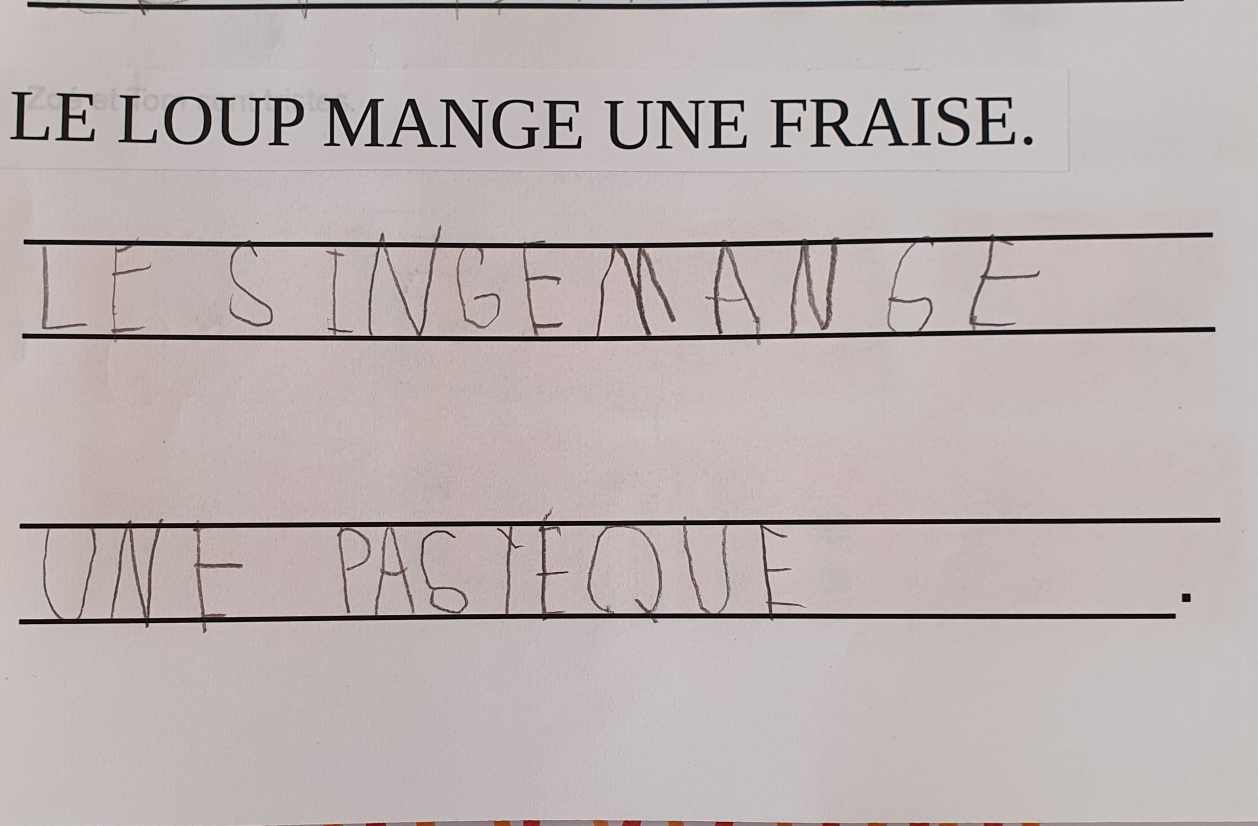 LE LOUP MANGE UNE FRAISE.
LE SINGE MANGE
UNE PASTÉQUE .